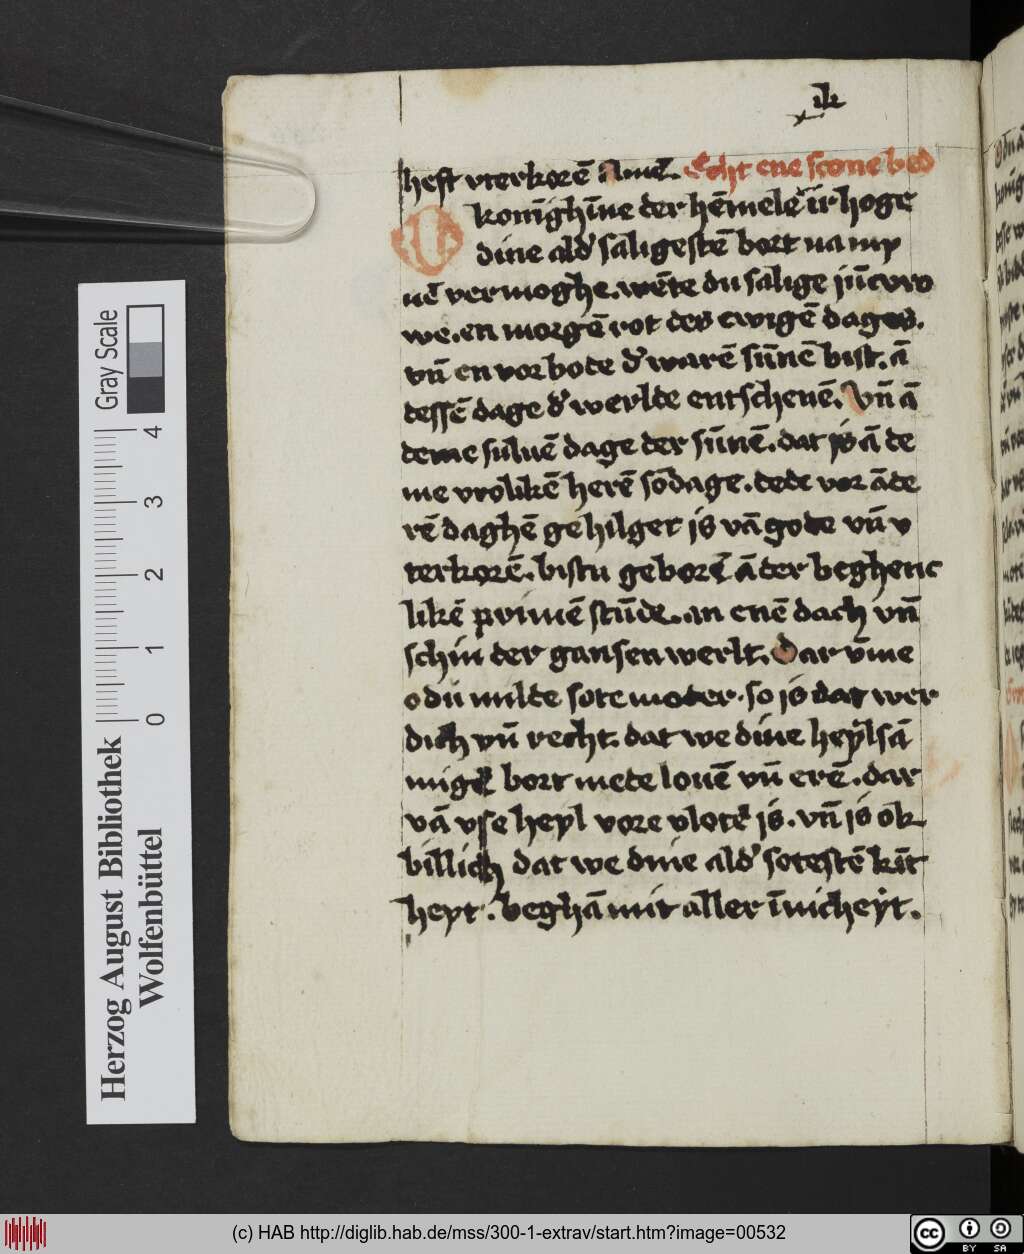 ik
heft vterkorē Amē. Echt ene scone bed
O konīghīne der hēmele ir hoge
dine ald' saligestē bort na my
nē vermoghe. wēte du salige jūcvro
we. en morgē rot des ewigē dages.
vn̄ en vorbode d' warē sūnē bist. ā
dessē dage d' werlde entschenē. Vn̄ ā
deme suluē dage der sūnē. dat is ā de
me vrolikē herē sōdage. dede vor āde
rē daghē gehilget is vā gode vn̄ v
terkorē. bistu geborē ā der beghenc
likē primē stūde. an enē dach vn̄
schin der gansen werlt. Dar v̄me
o du milde sote moder. so is dat wer
dich vn̄ recht. dat we dine heylsā
migē bort mede louē vn̄ erē. dar
vā vse heyl vore vlotē is. vn̄ is ok
billich dat we dine ald' sotestē kīt
heyt. beghā mit aller īnicheyt.
Gray Scale
4
3
2
1
0
Herzog August Bibliothek
Wolfenbüttel
(c) HAB http://diglib.hab.de/mss/300-1-extrav/start.htm?image=00532
cc BY SA